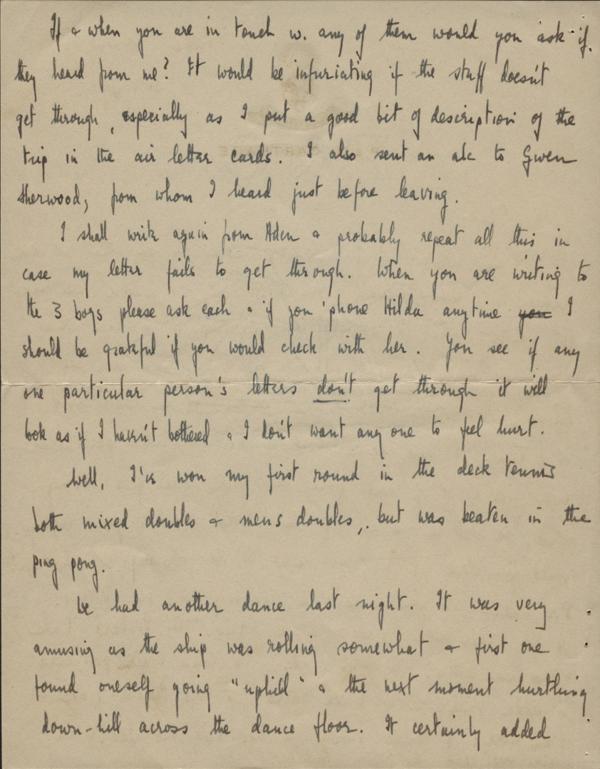 If & when you are in touch w. any of them would you ask if
they heard from me? It would be infuriating if the stuff doesn't
get through, especially as I put a good bit of description of the
trip in the air letter cards. I also sent an alc to Gwen
Sherwood, from whom I heard just before leaving.
I shall write again from Aden & probably repeat all this in
case my letter fails to get through. When you are writing to
the 3 boys please ask each & if you 'phone Hilda anytime you I
should be grateful if you would check with her. You see if any
one particular person's letters don't get through it will
look as if I haven't bothered & I don't want any one to feel hurt.
Well, I've won my first round in the deck tennis
both mixed doubles & mens doubles, but was beaten in the
ping pong.
We had another dance last night. It was very
amusing as the ship was rolling somewhat & first one
found oneself going "uphill" & the next moment hurtling
down-hill across the dance floor. It certainly added